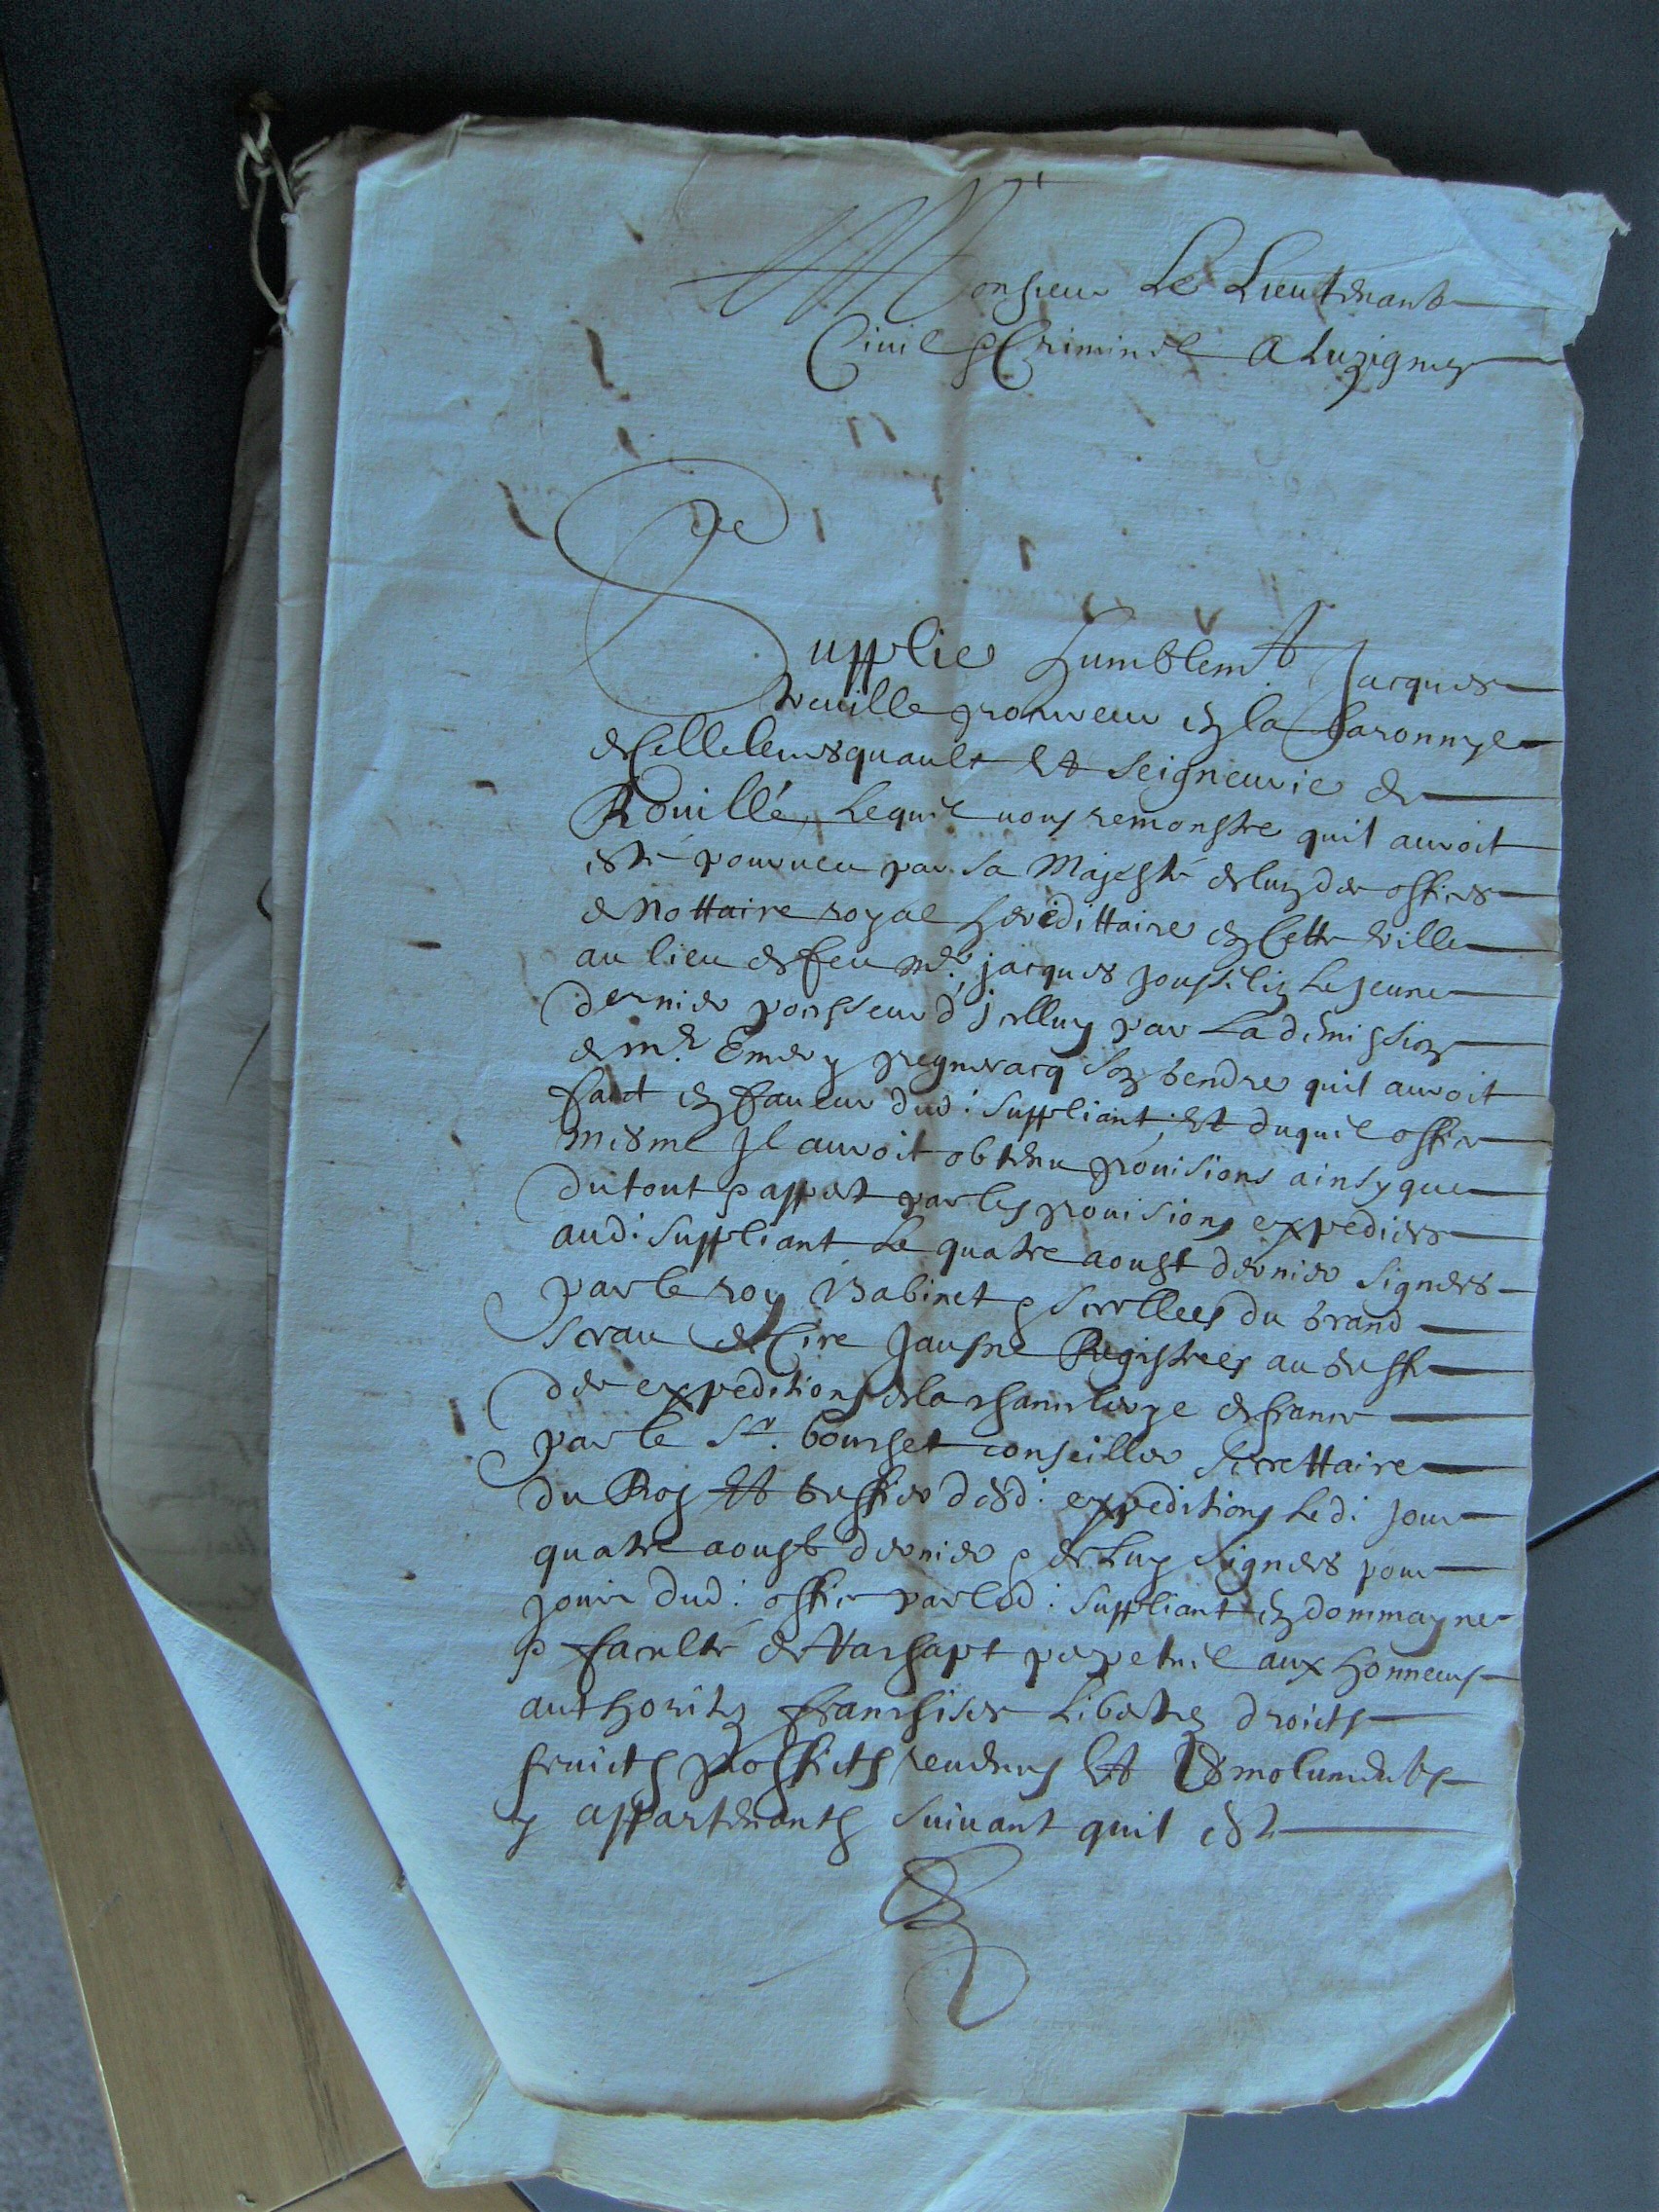 Monsieur Le Lieutenant
Civil & Criminel a Luzignen
Supplie humblemt Jacques
procureur en la baronnye
de Celle levesquault Et Seigneurie de
Rouillé, Lequel vous remonstre quil auroit
esté pourveu par Sa Majesté de lun des offices
de Nottaire royal heredittaire en Cette ville
au lieu de feu me. jacques Jousselin Le Jeune
dernier poscesseur d'jcelluy par La demission
de mr. Emery Son gendre quil auroit
faict en faveur dud: Suppliant, Et duquel office
mesme Jl auroit obtenu provisions ainsy que
du tout appert par les provisions expediees
aud: Suppliant Le quatre aoust dernier Signees
par le roy Babinet & Scellees du grand
Sceau de Cire Jausne Registrees au greffe
des expeditions de la chancelerye de france
par le Sr. bourget conseiller Secrettaire
du Roy Et greffier desd: expeditions Led: Jour
quatre aoust dernier & de Luy Signees pour
jouir dud: office par led: Suppliant en dommayne
& faculté de Rachapt perpetuel aux honneurs
authoritez franchises Libertez droicts
fruicts profficts revenus Et Esmoluments
y appartenants Suivant quil est